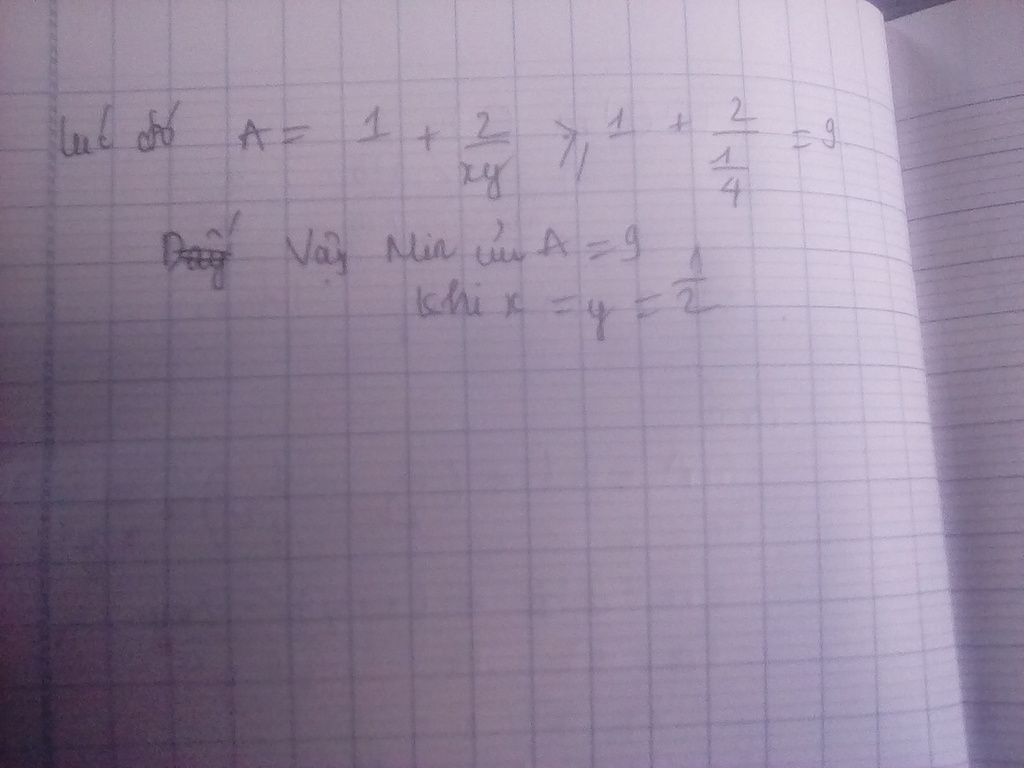 Lúc đó A = 1 + 2/xy ≥ 1 + 2/(1/4) = 9
Vậy Min của A = 9
khi x = y = 1/2